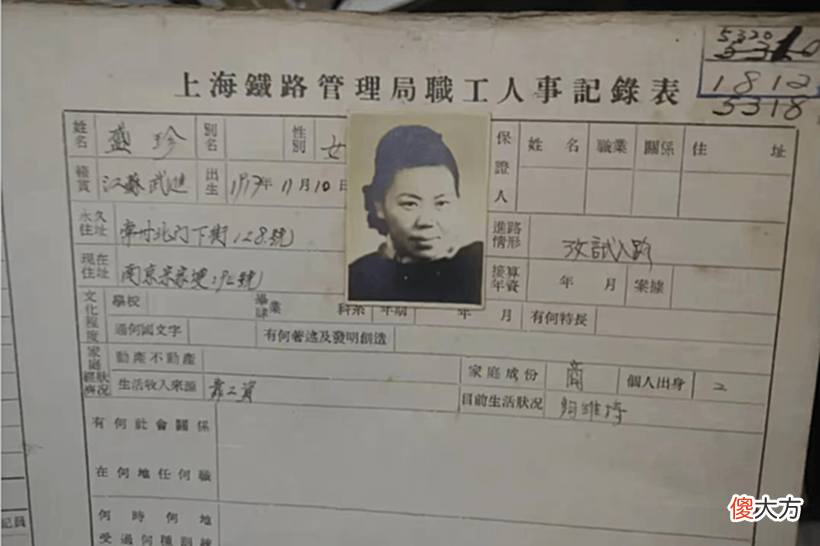 5320
1812
5318
上海鐵路管理局職工人事記錄表
姓名 盛珍 別名 性別 女 保證人 姓名 職業 關係 住址
籍貫 江蘇武進 出生 1917年11月10日
永久住址 常州北门下街128號 進路情形 攷試入路
現在住址 南京 號 接算年資 年 月 案據
文化程度 學校 畢業 科系 年 月 有何特長
通何國文字 有何著述及發明創造
家庭經濟狀況 動產不動產 家庭成份 商 個人出身
生活收入來源 靠工資 目前生活狀況 夠維持
有何社會關係
在何地任何職
何時何地
受過何種訓練
記員
傻大方